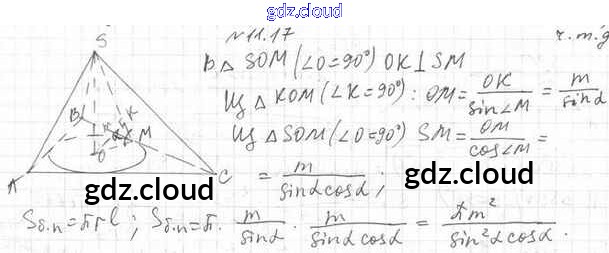 gdz.cloud
N 11.17 ч.т.д
В △ SOM (∠O=90°) OK ⊥ SM
Из △ KOM (∠K=90°): OM = OK/sin∠M = m/sinα
Из △ SOM (∠O=90°) SM = OM/cos∠M =
= m/sinα cosα ;
S
B K
M
O
A C
gdz.cloud gdz.cloud
Sб.п = πrl ; Sб.п = π · m/sinα · m/sinα cosα = πm²/sin²α cosα .